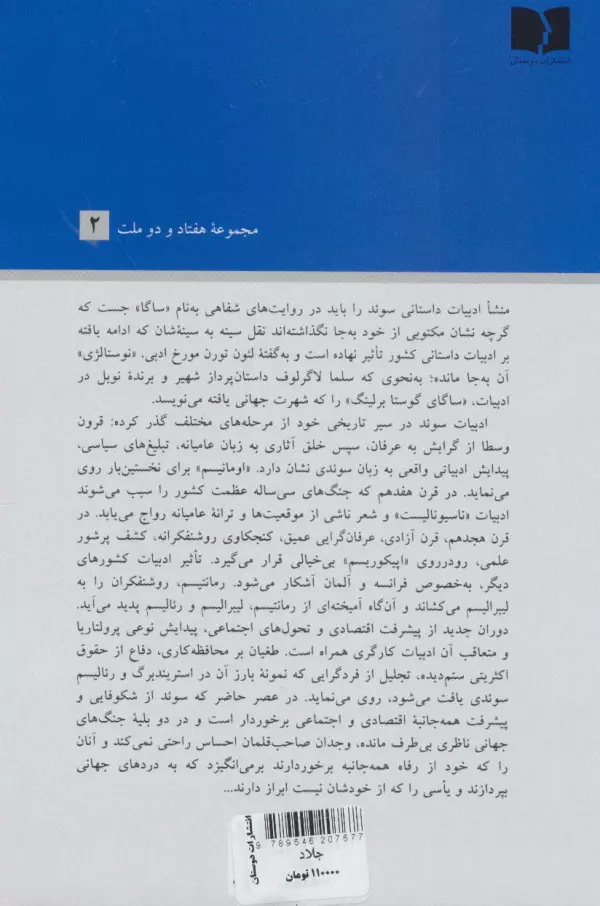 انتشارات دوستان
مجموعهٔ هفتاد و دو ملت ۲
منشأ ادبیات داستانی سوئد را باید در روایت‌های شفاهی به‌نام «ساگا» جست که
گرچه نشان مکتوبی از خود به‌جا نگذاشته‌اند نقل سینه به سینه‌شان که ادامه یافته
بر ادبیات داستانی کشور تأثیر نهاده است و به‌گفتهٔ لنون تورن مورخ ادبی، «نوستالژی»
آن به‌جا مانده؛ به‌نحوی که سلما لاگرلوف داستان‌پرداز شهیر و برندهٔ نوبل در
ادبیات، «ساگای گوستا برلینگ» را که شهرت جهانی یافته می‌نویسد.
ادبیات سوئد در سیر تاریخی خود از مرحله‌های مختلف گذر کرده: قرون
وسطا از گرایش به عرفان، سپس خلق آثاری به زبان عامیانه، تبلیغ‌های سیاسی،
پیدایش ادبیاتی واقعی به زبان سوئدی نشان دارد. «اومانیسم» برای نخستین‌بار روی
می‌نماید. در قرن هفدهم که جنگ‌های سی‌ساله عظمت کشور را سبب می‌شوند
ادبیات «ناسیونالیست» و شعر ناشی از موقعیت‌ها و ترانهٔ عامیانه رواج می‌یابد. در
قرن هجدهم، قرن آزادی، عرفان‌گرایی عمیق، کنجکاوی روشنفکرانه، کشف پرشور
علمی، رودرروی «اپیکوریسم» بی‌خیالی قرار می‌گیرد. تأثیر ادبیات کشورهای
دیگر، به‌خصوص فرانسه و آلمان آشکار می‌شود. رمانتیسم، روشنفکران را به
لیبرالیسم می‌کشاند و آن‌گاه آمیخته‌ای از رمانتیسم، لیبرالیسم و رئالیسم پدید می‌آید.
دوران جدید از پیشرفت اقتصادی و تحول‌های اجتماعی، پیدایش نوعی پرولتاریا
و متعاقب آن ادبیات کارگری همراه است. طغیان بر محافظه‌کاری، دفاع از حقوق
اکثریتی ستم‌دیده، تجلیل از فردگرایی که نمونهٔ بارز آن در استریندبرگ و رئالیسم
سوئدی یافت می‌شود، روی می‌نماید. در عصر حاضر که سوئد از شکوفایی و
پیشرفت همه‌جانبهٔ اقتصادی و اجتماعی برخوردار است و در دو بلیهٔ جنگ‌های
جهانی ناظری بی‌طرف مانده، وجدان صاحب‌قلمان احساس راحتی نمی‌کند و آنان
را که خود از رفاه همه‌جانبه برخوردارند برمی‌انگیزد که به دردهای جهانی
بپردازند و یأسی را که از خودشان نیست ابراز دارند...
انتشارات دوستان
9 789646 207677
جلاد
۱۱۰۰۰۰ تومان